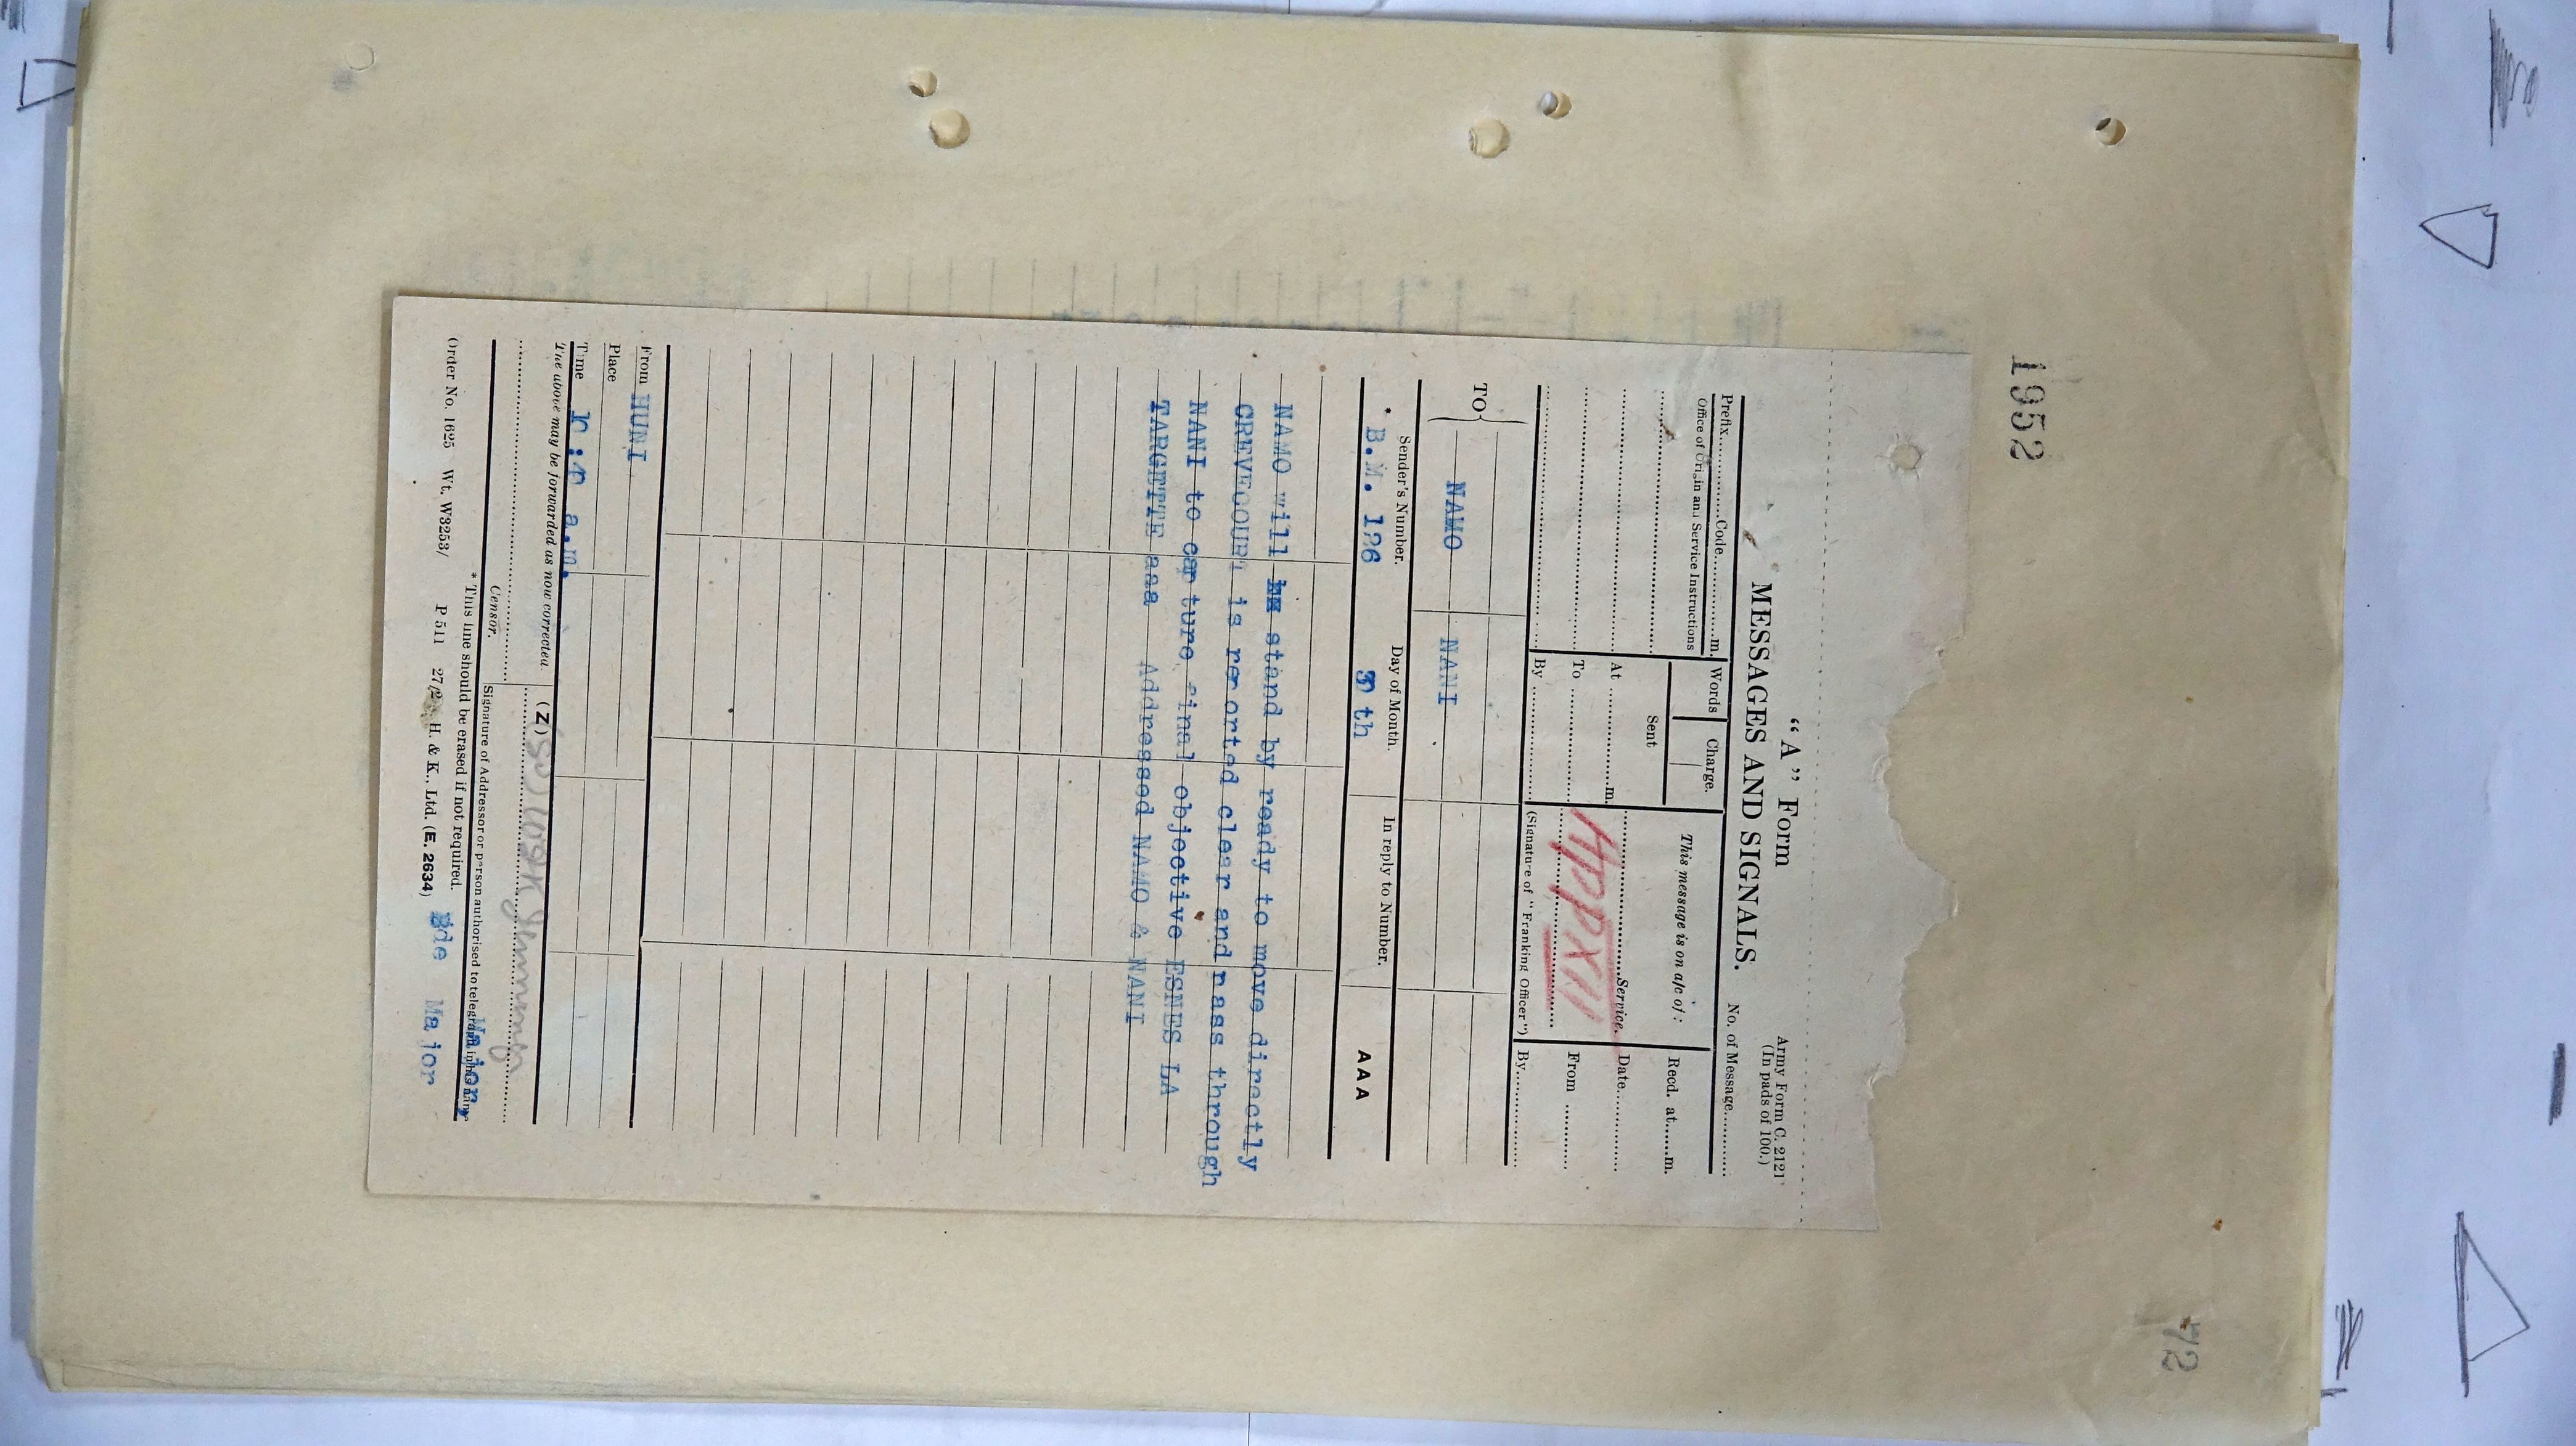 1952
"A" Form
Army Form C. 2121
(In pads of 100.)
MESSAGES AND SIGNALS.
No. of Message
Prefix Code m.
Words Charge.
This message is on a/c of:
Recd. at m.
Office of Origin and Service Instructions
Sent
Service.
Date
At m.
To
APP XII
From
By
(Signature of "Franking Officer")
By
TO NAMO NANI
Sender's Number. Day of Month. In reply to Number.
* B.M. 126 th AAA
NAMO will stand by ready to move directly
CREVECOUER is reported clear and pass through
NANI to capture final objective ESNES LA
TARGETTE aaa Addressed NAMO & NANI
From HUNI
Place
Time a.m.
The above may be forwarded as now corrected. (Z)
Censor. Signature of Addressor or person authorised to telegraph in his name
Major,
* This line should be erased if not required.
Order No. 1625 Wt. W3253/ P 511 H. & K., Ltd. (E. 2634) Bde Major
72